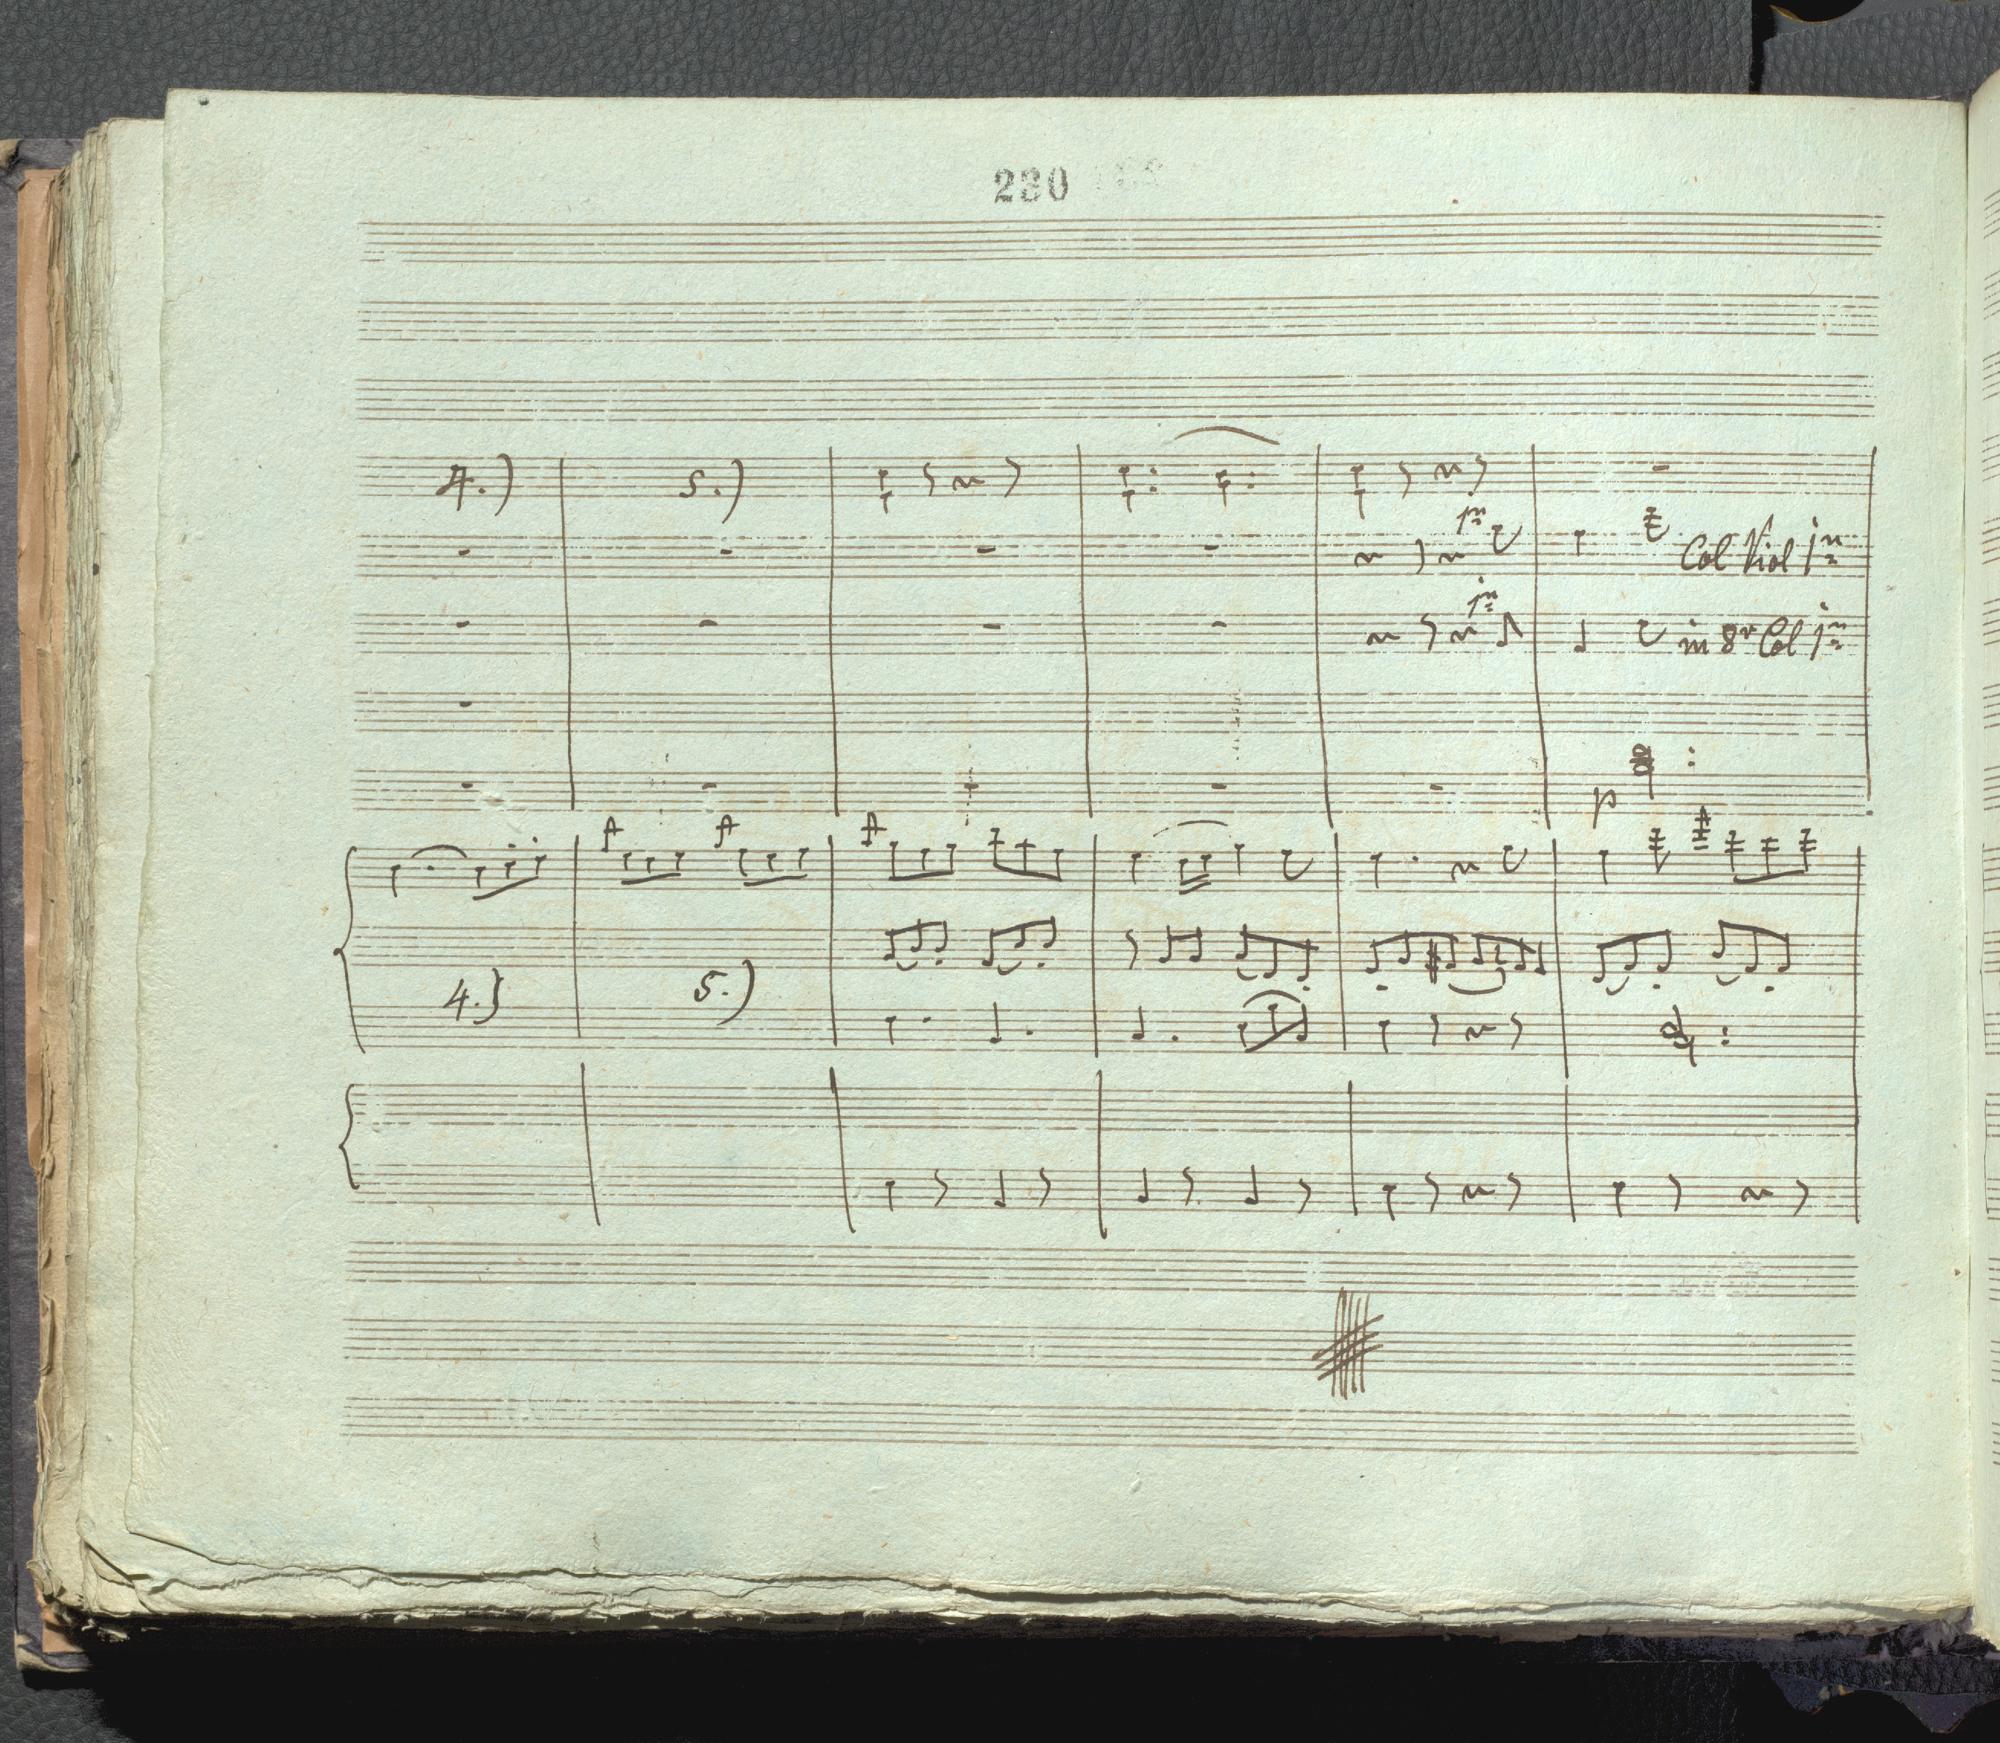 280
4.) 5.)
1mo
Col Viol 1mo
1mo
in 8va Col 1mo
p
4.) 5.)